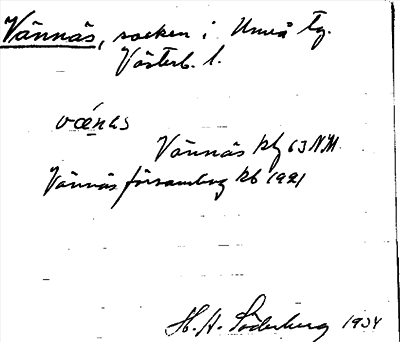 Vännäs, socken i Umeå tg.
Västerb. l.
Vännäs kbg 63 NM.
Vännäs församling kb 1921
H. A. Söderberg 1934